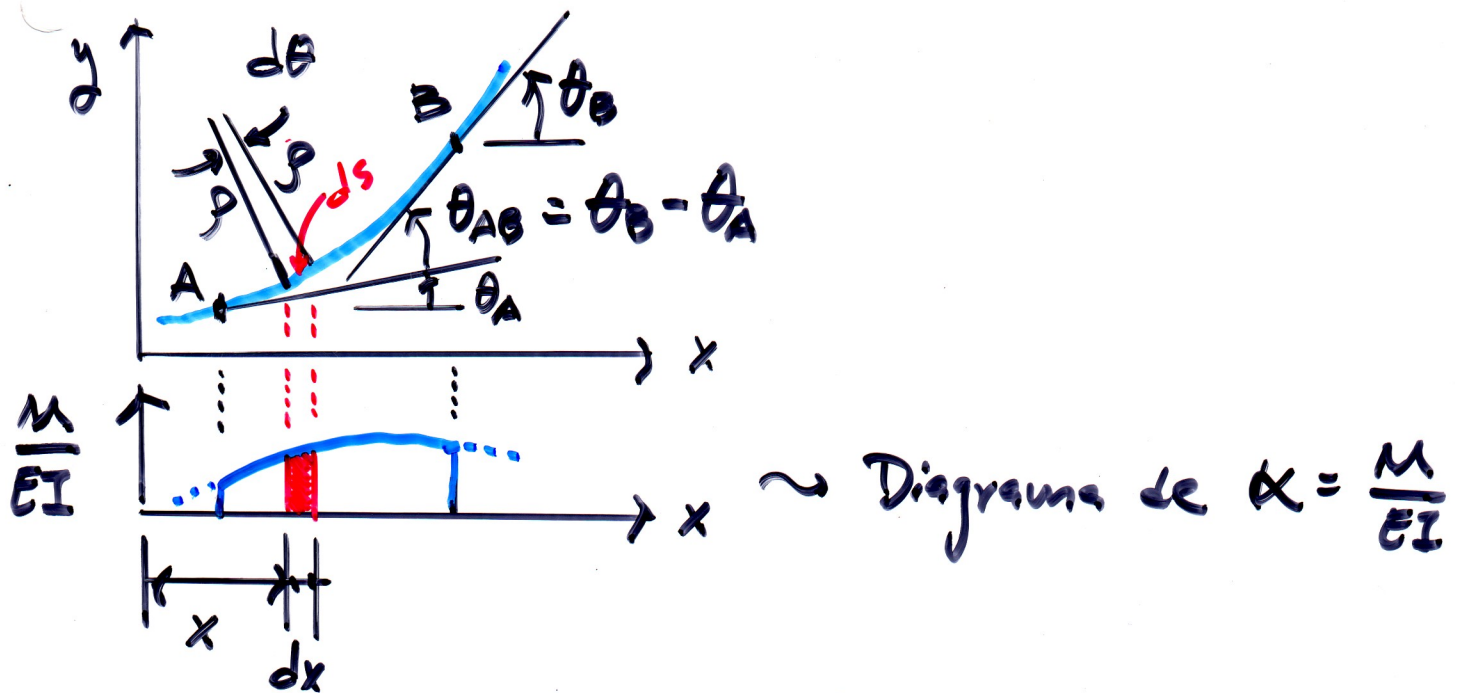 y
dθ
B
θ_B
ρ
ρ
ds
θ_AB = θ_B - θ_A
A
θ_A
x
M/EI
x
~ Diagrama de α = M/EI
x
dx